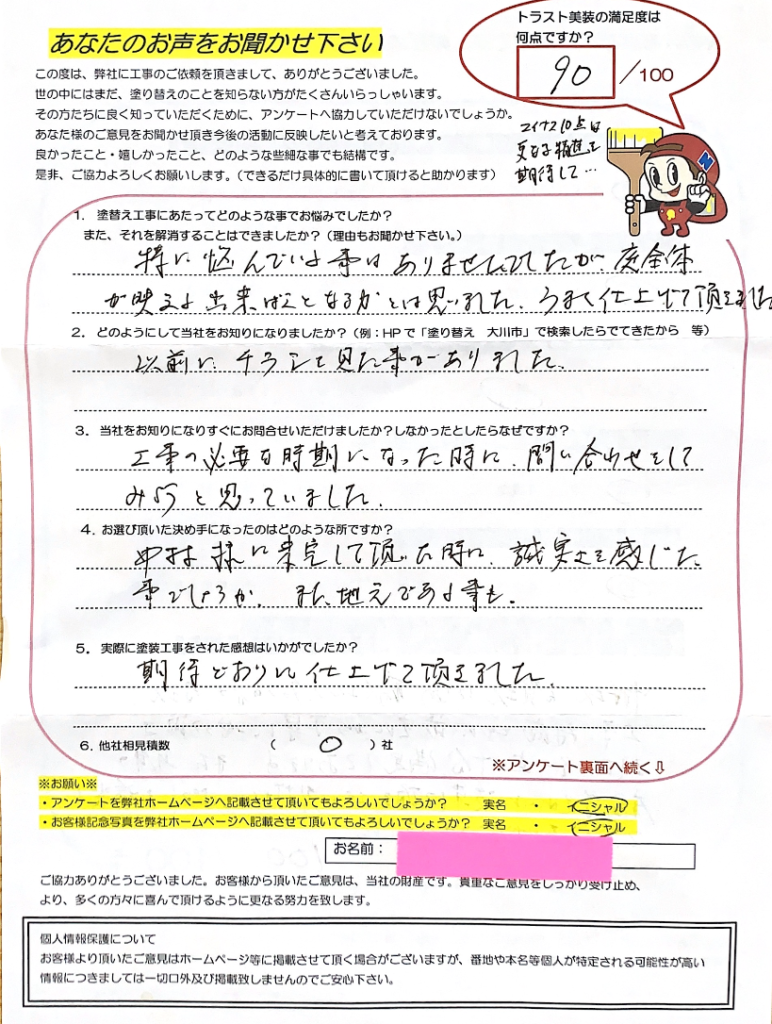 あなたのお声をお聞かせ下さい
トラスト美装の満足度は
何点ですか?
90 /100
マイナス10点は
更なる精進を
期待して…
この度は、弊社に工事のご依頼を頂きまして、ありがとうございました。
世の中にはまだ、塗り替えのことを知らない方がたくさんいらっしゃいます。
その方たちに良く知っていただくために、アンケートへ協力していただけないでしょうか。
あなた様のご意見をお聞かせ頂き今後の活動に反映したいと考えております。
良かったこと・嬉しかったこと、どのような些細な事でも結構です。
是非、ご協力よろしくお願いします。(できるだけ具体的に書いて頂けると助かります)
N
1. 塗替え工事にあたってどのような事でお悩みでしたか?
また、それを解消することはできましたか?(理由もお聞かせ下さい。)
特に悩んでいる事はありませんでしたが、庭全体
が映える出来ばえとなるかとは思いました。うまく仕上げて頂きました
2. どのようにして当社をお知りになりましたか?(例:HPで「塗り替え 大川市」で検索したらでてきたから 等)
以前に、チラシを見た事がありました。
3. 当社をお知りになりすぐにお問合せいただけましたか?しなかったとしたらなぜですか?
工事の必要な時期になった時に、問い合わせをして
みようと思っていました。
4. お選び頂いた決め手になったのはどのような所ですか?
様に来宅して頂いた時に、誠実さを感じた
事でしょうか。また、地元である事も。
5. 実際に塗装工事をされた感想はいかがでしたか?
期待どおりに仕上げて頂きました。
6. 他社相見積数 ( 0 )社
※アンケート裏面へ続く⇩
※お願い※
・アンケートを弊社ホームページへ記載させて頂いてもよろしいでしょうか? 実名 ・ イニシャル
・お客様記念写真を弊社ホームページへ記載させて頂いてもよろしいでしょうか? 実名 ・ イニシャル
お名前:
ご協力ありがとうございました。お客様から頂いたご意見は、当社の財産です。貴重なご意見をしっかり受け止め、
より、多くの方々に喜んで頂けるように更なる努力を致します。
個人情報保護について
お客様より頂いたご意見はホームページ等に掲載させて頂く場合がございますが、番地や本名等個人が特定される可能性が高い
情報につきましては一切口外及び掲載致しませんのでご安心下さい。